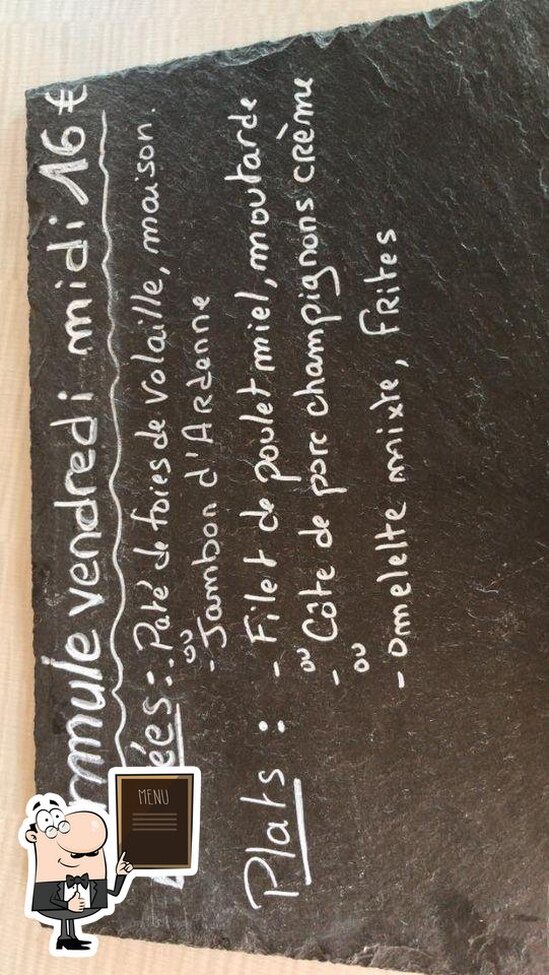 mule vendredi midi 16 €
ées : - Paté de foies de volaille, maison.
ou
- Jambon d'Ardenne
Plats : - Filet de poulet miel, moutarde
ou
- Côte de porc champignons crème
ou
- Omelette mixte, frites
MENU